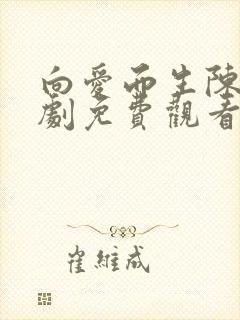 向愛而生陳
劇免費觀看
崔維成